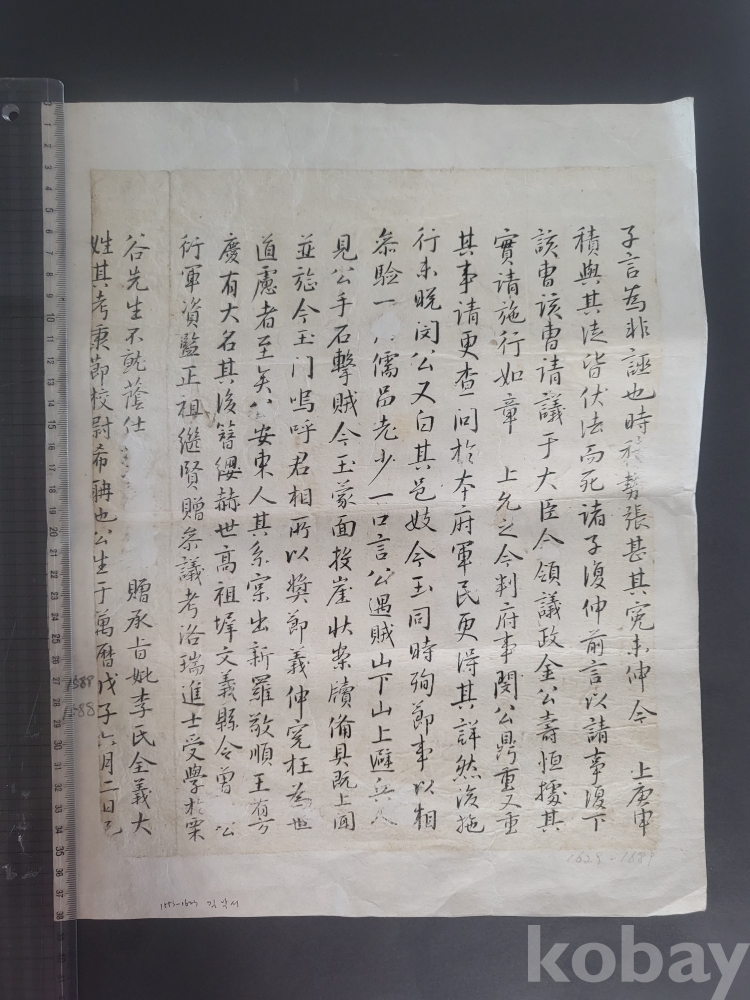 子言為非誣也時積勢張甚其寃未伸今 上庚申
積與其徒皆伏法而死諸子復伸前言以請事復下
該曺該曺請議于大臣今領議政金公壽恒據其
實請施行如章 上允之今判府事閔公鼎重又重
其事請更查問於本府軍民更得其詳然後施
行未晩閔公又白其邑妓今玉同時殉節事以相
叅驗一 儒品老少一口言公遇賊山下山上避兵人
見公手石擊賊今玉蒙面投崖狀案牘備具旣上聞
並旌今玉门嗚呼君相所以奬節義伸寃枉為世
道慮者至矣 公安東人其系寔出新羅敬順王有方
慶有大名其後簪纓赫世高祖墀文義縣令曾 公
衍軍資監正祖繼賢贈叅議考洛瑞進士受學於栗
谷先生不就蔭仕 贈承旨妣李氏全義大
姓其考秉節校尉希聃也公生于萬曆戊子六月二日
1588
1588
1629-1689
김낙서
kobay